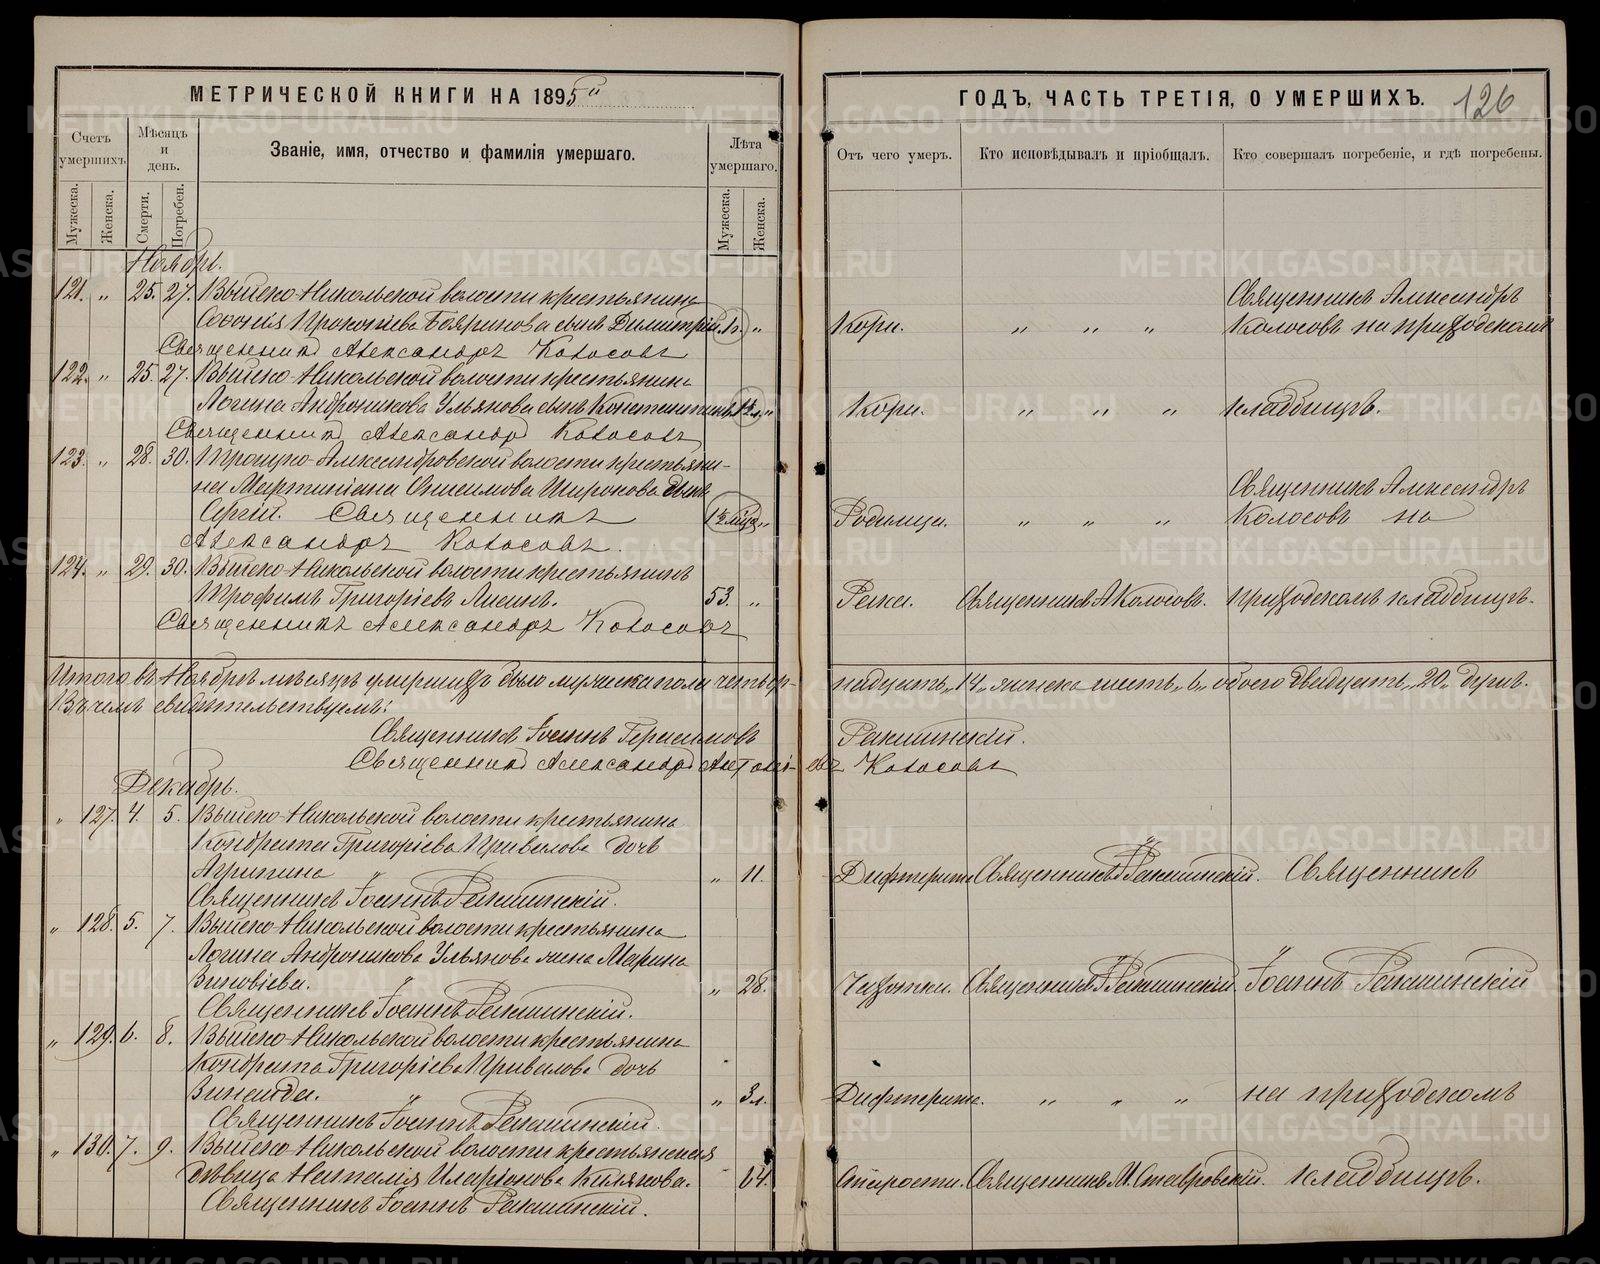 МЕТРИЧЕСКОЙ КНИГИ НА 1895й
ГОДЪ, ЧАСТЬ ТРЕТІЯ, О УМЕРШИХЪ.
126
Счетъ умершихъ
Мѣсяцъ и день.
Званіе, имя, отчество и фамилія умершаго.
Лѣта умершаго.
Отъ чего умеръ.
Кто исповѣдывалъ и пріобщалъ.
Кто совершалъ погребеніе, и гдѣ погребены.
Мужеска.
Женска.
Смерти.
Погребен.
Мужеска.
Женска.
Ноябрь.
121. „ 25. 27. Выйско-Никольской волости крестьянина
Священникъ Александръ
Софонія Прокопіева Бояринова сынъ Димитрій. „ Кори. „ „ „ Колосовъ на приходскомъ
Священникъ Александръ Колосовъ
122. „ 25. 27. Выйско-Никольской волости крестьянина
Логина Андроникова Ульянова сынъ Константинъ. „ Кори. „ „ „ кладбищѣ.
Священникъ Александръ Колосовъ
123. „ 28. 30. Троицко-Александровской волости крестьяни-
на Мартиніана Анисимова Широкова сынъ
Священникъ Александръ
Сергій. Священникъ „ Родимца. „ „ „ Колосовъ на
Александръ Колосовъ.
124. „ 29. 30. Выйско-Никольской волости крестьянинъ
Трофимъ Григоріевъ Лисинъ. 53. „ Рака. Священникъ А Колосовъ. приходскомъ кладбищѣ.
Священникъ Александръ Колосовъ
Итого въ Ноябрѣ мѣсяцѣ умершихъ было мужеска пола четыр-
надцать „14„ женска шесть „6„ обоего двадцать „20„ душъ.
Въ чемъ свидѣтельствуемъ:
Священникъ Іоаннъ Герасимовъ Ракшинскій.
Священникъ Александръ Антоні-евъ Колосовъ
Декабрь.
„ 127. 4. 5. Выйско-Никольской волости крестьянина
Кондрата Григоріева Привалова дочь
Агрипина „ 11. Дифтерита Священникъ І Ракшинскій. Священникъ
Священникъ Іоаннъ Ракшинскій.
„ 128. 5. 7. Выйско-Никольской волости крестьянина
Логина Андроникова Ульянова жена Марина
Зиновіева. „ 28. Чахотки. Священникъ І Ракшинскій. Іоаннъ Ракшинскій
Священникъ Іоаннъ Ракшинскій.
„ 129. 6. 8. Выйско-Никольской волости крестьянина
Кондрата Григоріева Привалова дочь
Зинаида. „ 3 л. Дифтерита. „ „ „ на приходскомъ
Священникъ Іоаннъ Ракшинскій.
„ 130. 7. 9. Выйско-Никольской волости крестьянская
дѣвица Наталія Иларіонова Килякова. 64. Старости. Священникъ И. Ставровскій. кладбищѣ.
Священникъ Іоаннъ Ракшинскій.
METRIKI.GASO-URAL.RU